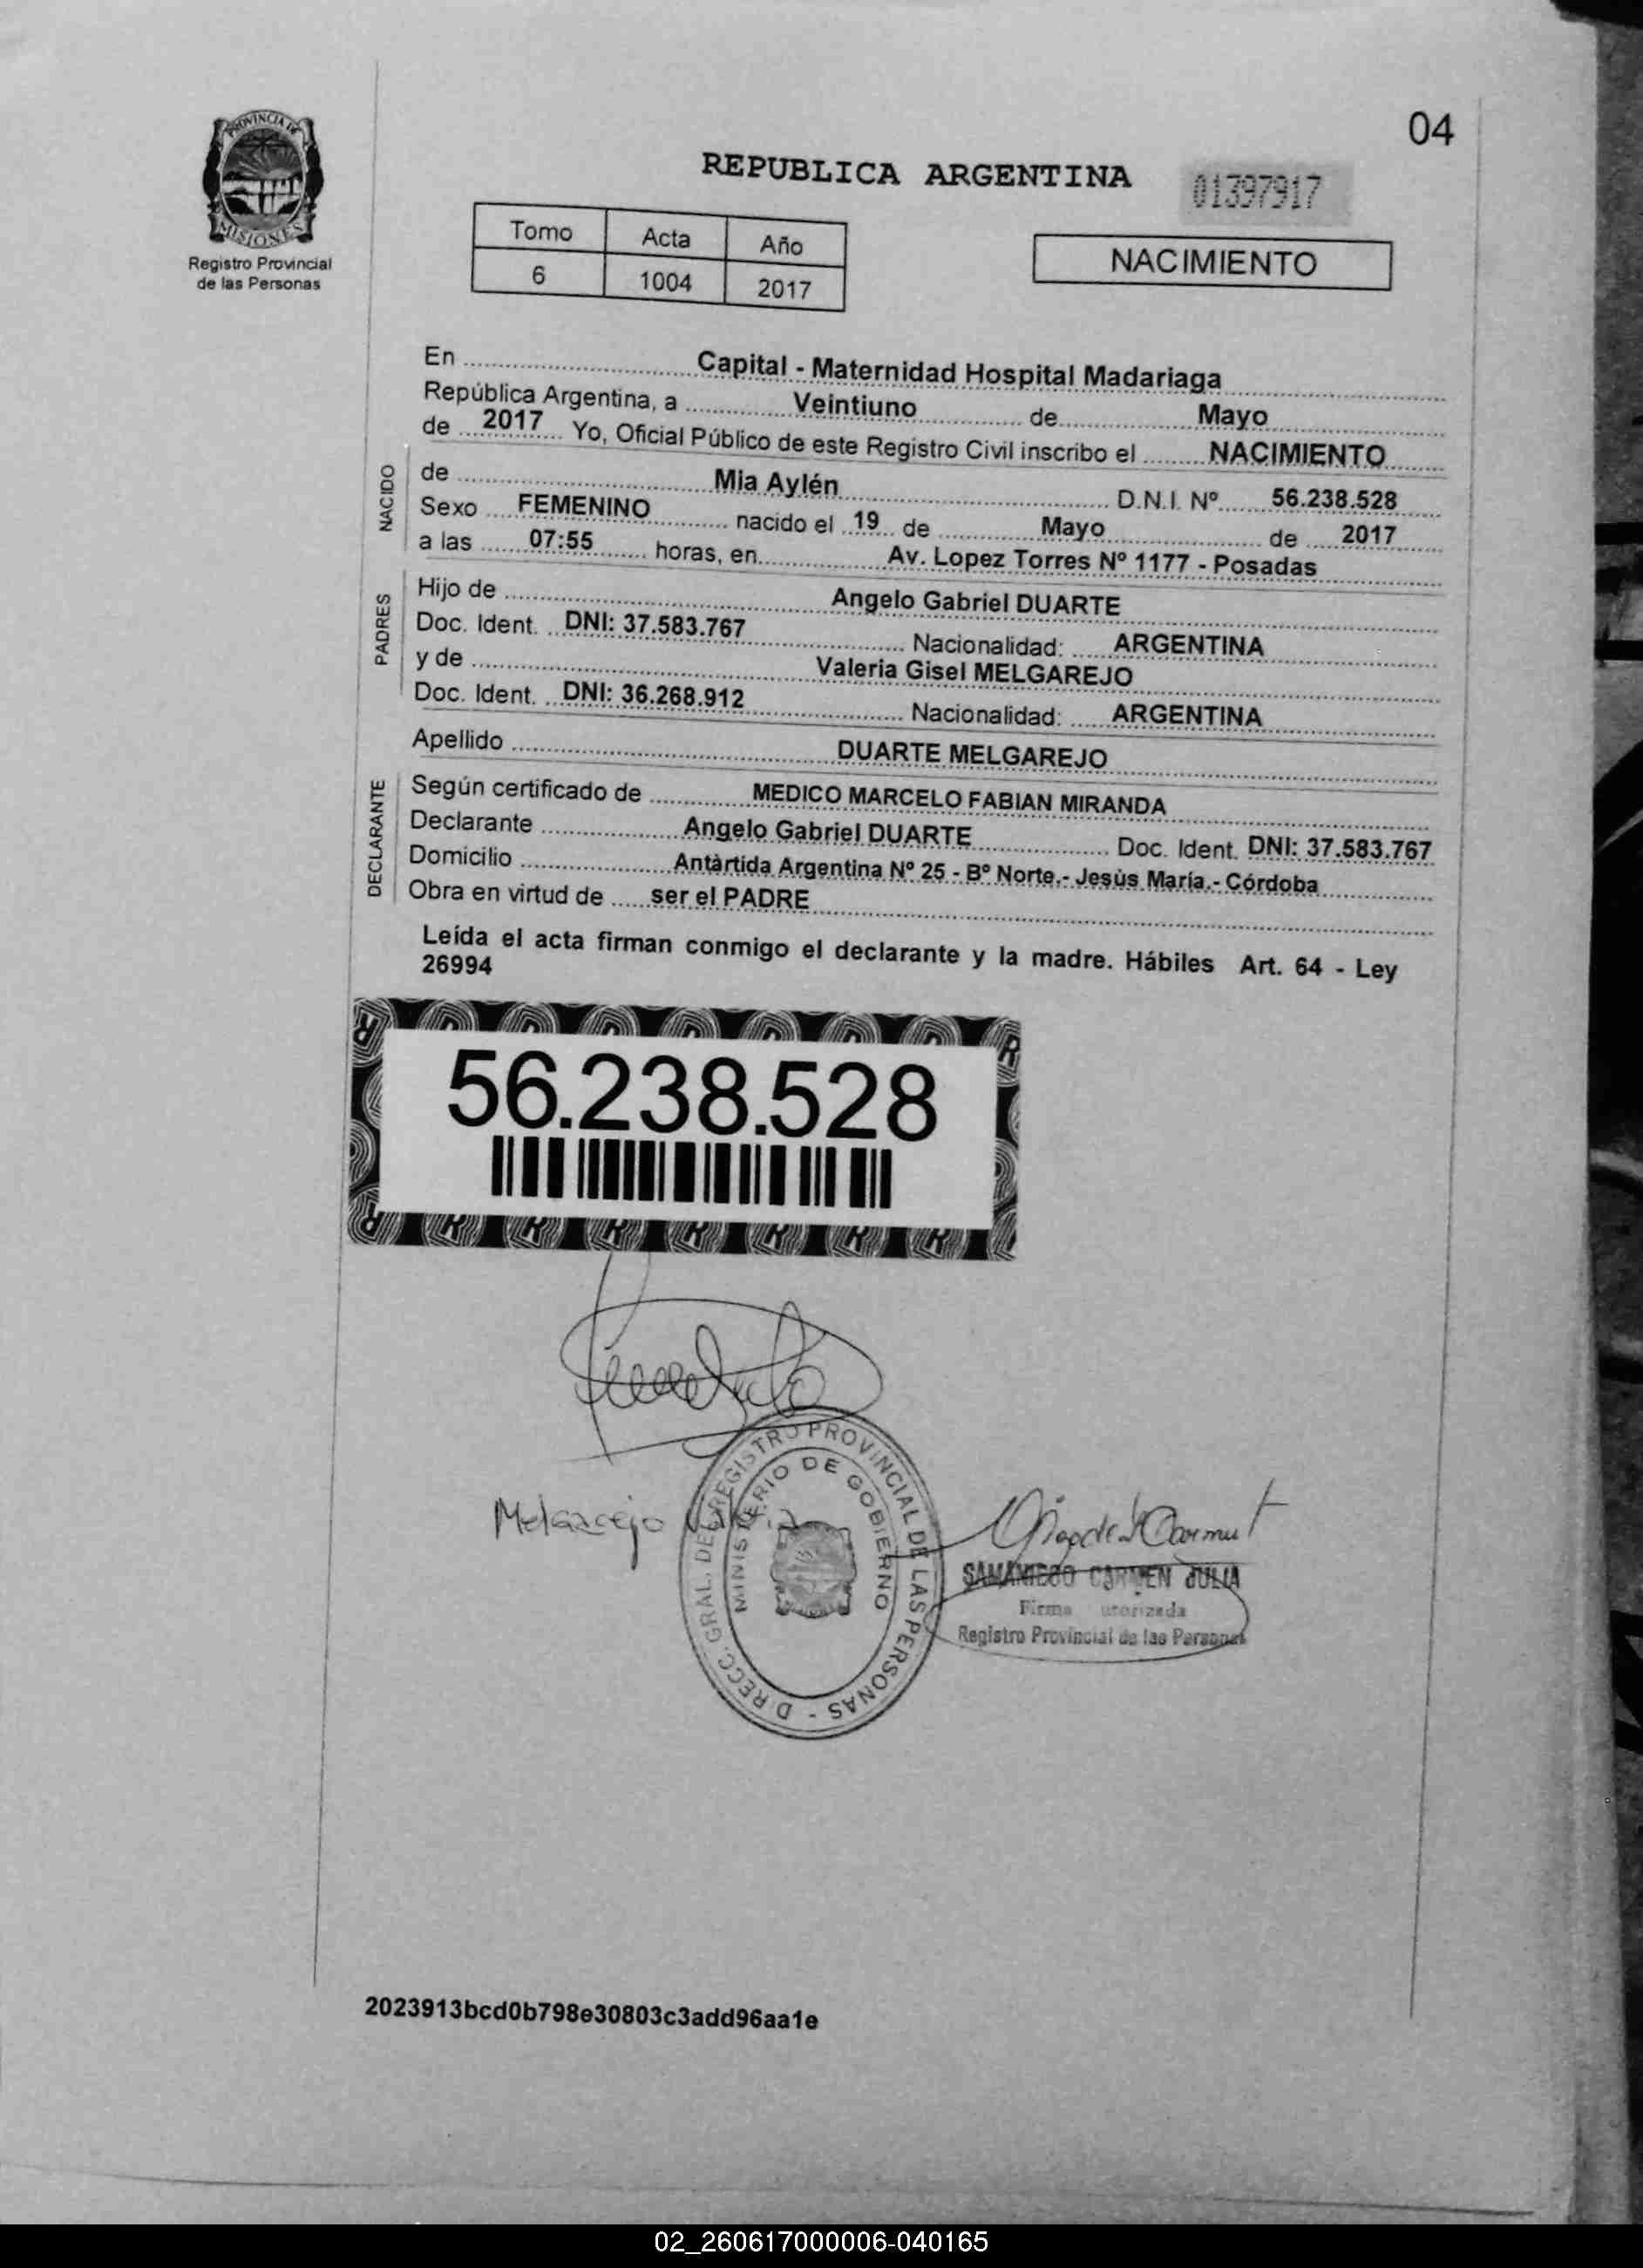 04
PROVINCIA DE
MISIONES
Registro Provincial
de las Personas
REPUBLICA ARGENTINA
01397917
Tomo Acta Año
6 1004 2017
NACIMIENTO
En Capital - Maternidad Hospital Madariaga
República Argentina, a Veintiuno de Mayo
de 2017 Yo, Oficial Público de este Registro Civil inscribo el NACIMIENTO
NACIDO
de Mia Aylén D.N.I. Nº 56.238.528
Sexo FEMENINO nacido el 19 de Mayo de 2017
a las 07:55 horas, en Av. Lopez Torres Nº 1177 - Posadas
PADRES
Hijo de Angelo Gabriel DUARTE
Doc. Ident. DNI: 37.583.767 Nacionalidad: ARGENTINA
y de Valeria Gisel MELGAREJO
Doc. Ident. DNI: 36.268.912 Nacionalidad: ARGENTINA
Apellido DUARTE MELGAREJO
DECLARANTE
Según certificado de MEDICO MARCELO FABIAN MIRANDA
Declarante Angelo Gabriel DUARTE Doc. Ident. DNI: 37.583.767
Domicilio Antàrtida Argentina Nº 25 - Bº Norte.- Jesùs María.- Córdoba
Obra en virtud de ser el PADRE
Leída el acta firman conmigo el declarante y la madre. Hábiles Art. 64 - Ley
26994
56.238.528
Melgarejo
DIRECC. GRAL. DEL REGISTRO PROVINCIAL DE LAS PERSONAS -
MINISTERIO DE GOBIERNO
SAMANIEGO CARMEN JULIA
Firma utorizada
Registro Provincial de las Personas
2023913bcd0b798e30803c3add96aa1e
02_260617000006-040165